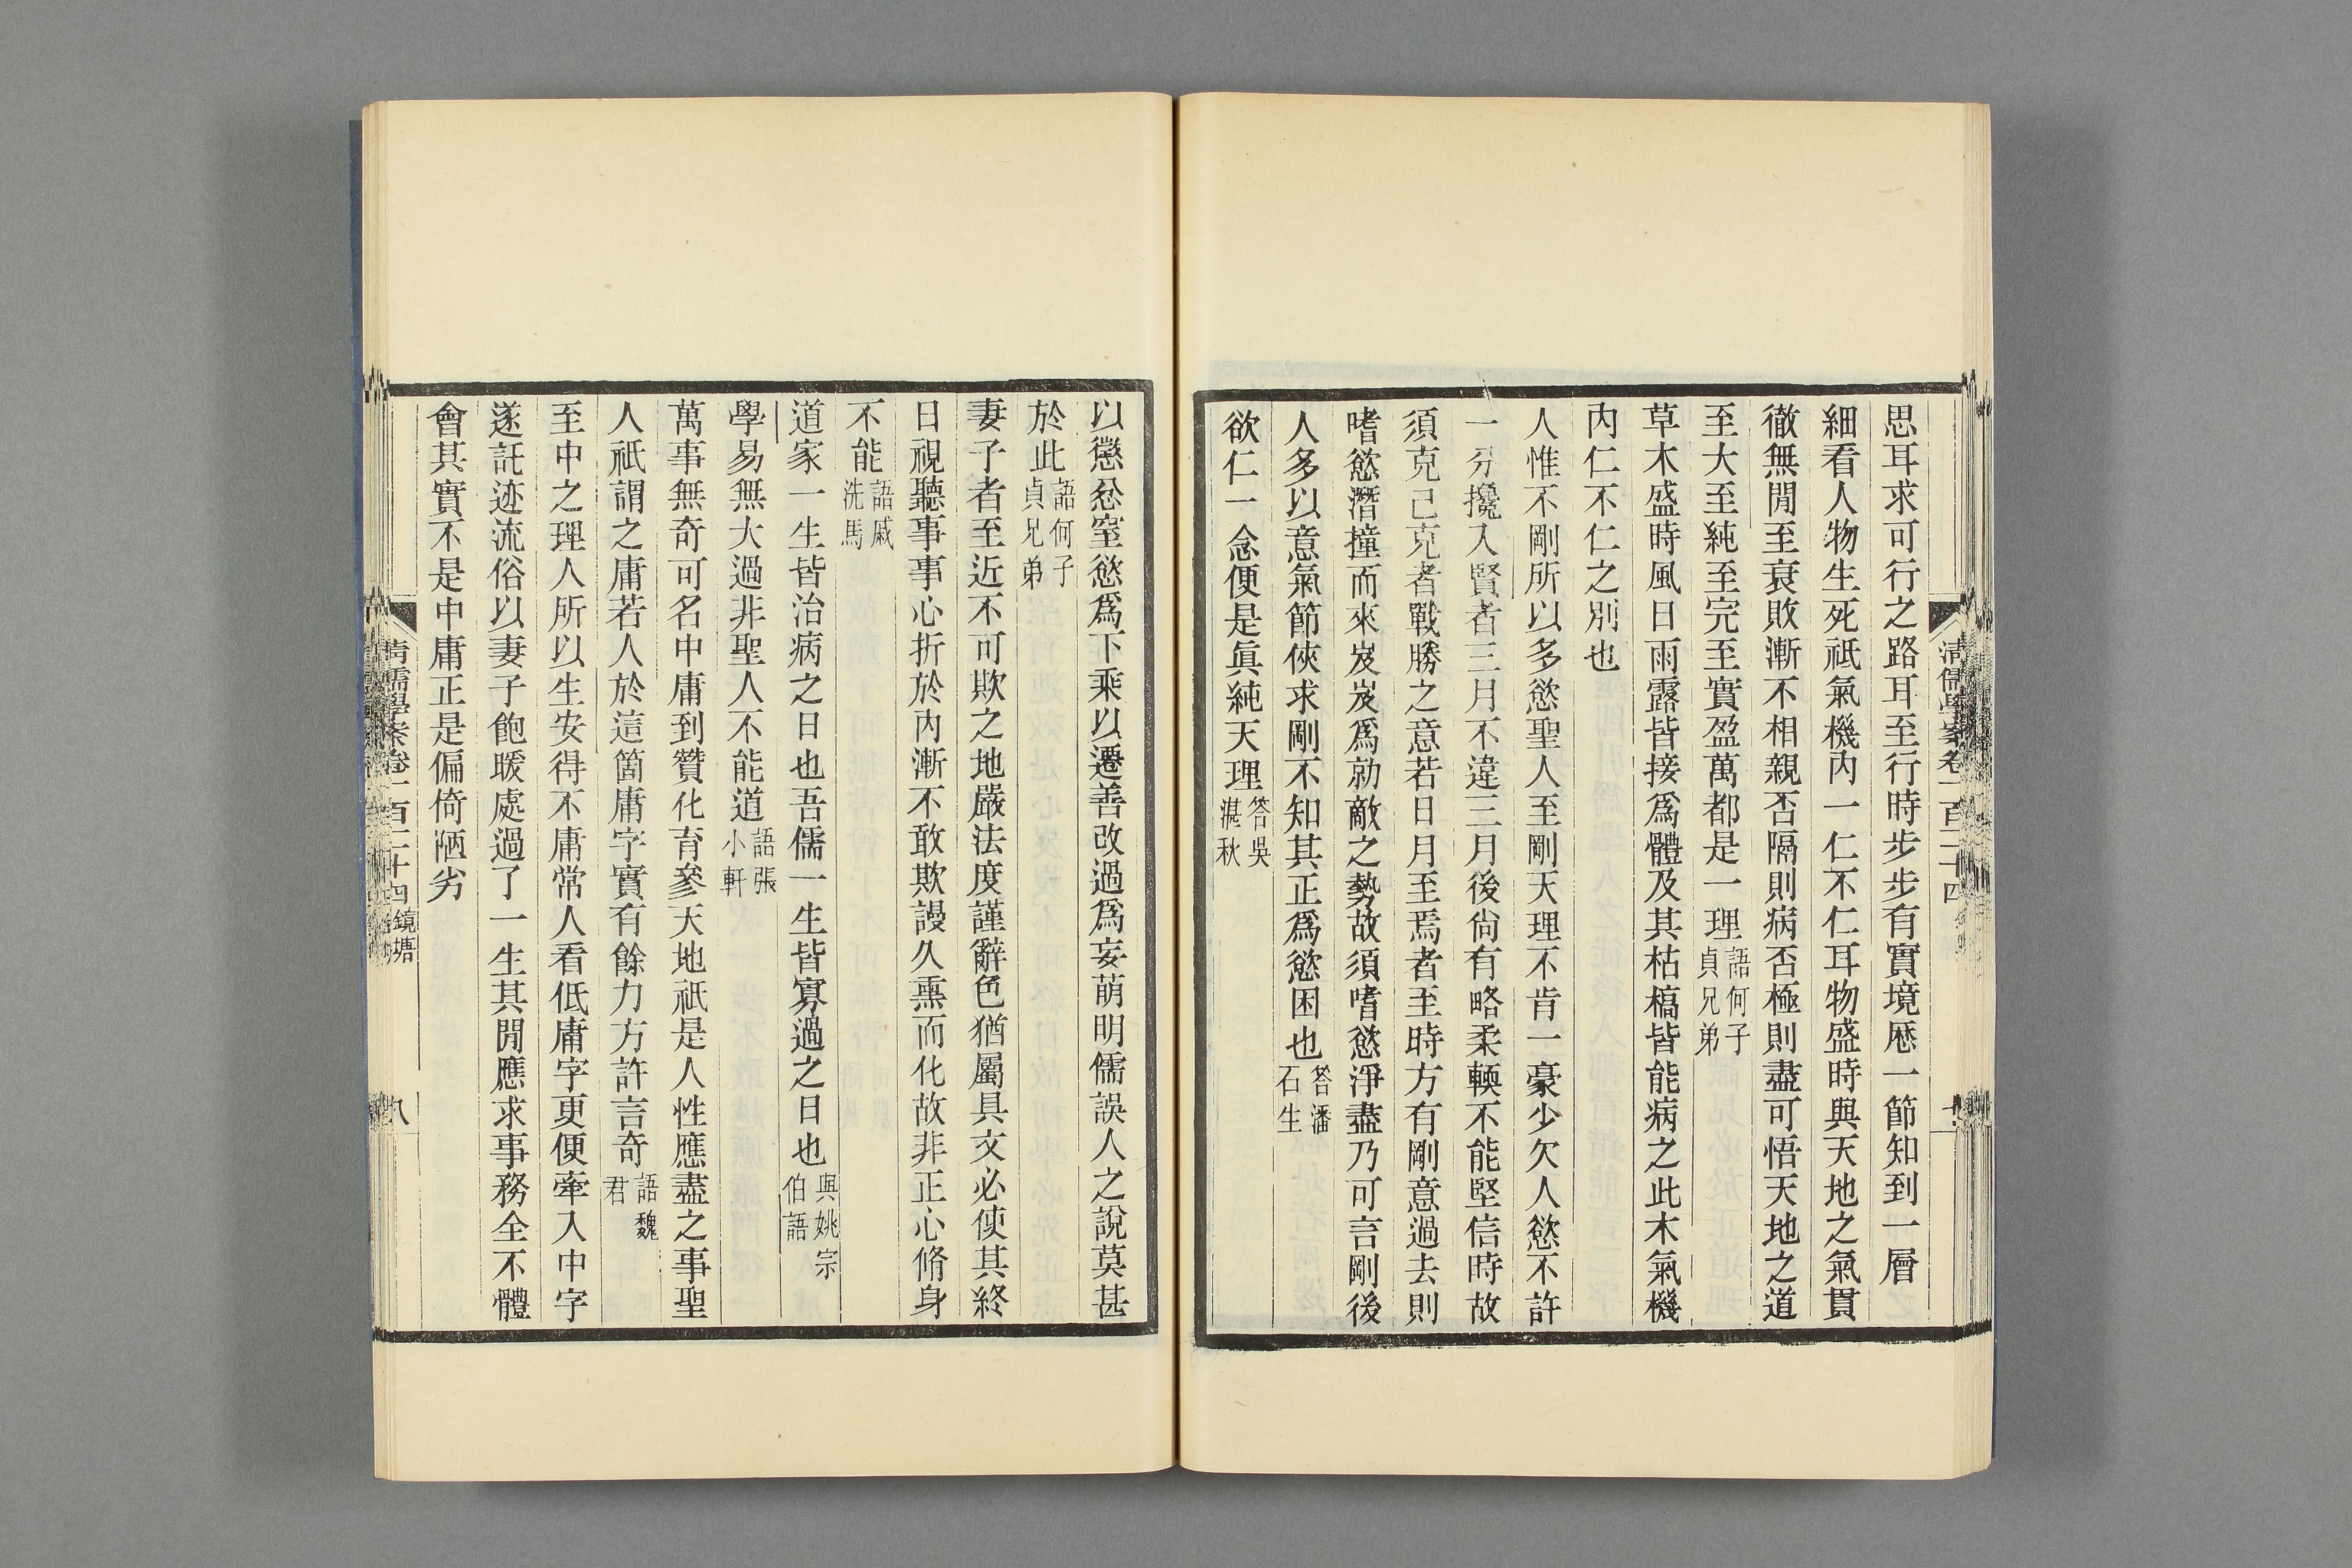 思耳求可行之路耳至行時步步有實境厯一節知到一層
細看人物生死祇氣機內一仁不仁耳物盛時與天地之氣貫
徹無閒至衰敗漸不相親否隔則病否極則盡可悟天地之道
至大至純至完至實盈萬都是一理語何子貞兄弟
草木盛時風日雨露皆接爲體及其枯槁皆能病之此木氣機
內仁不仁之別也
人惟不剛所以多慾聖人至剛天理不肯一豪少欠人慾不許
一分攙入賢者三月不違三月後尙有略柔輭不能堅信時故
須克己克者戰勝之意若日月至焉者至時方有剛意過去則
嗜慾潛撞而來岌岌爲勍敵之勢故須嗜慾淨盡乃可言剛後
人多以意氣節俠求剛不知其正爲慾困也答潘石生
欲仁一念便是眞純天理答吳湛秋
清儒學案卷一百二十四
以懲忿窒慾爲下乘以遷善改過爲妄萌明儒誤人之說莫甚
於此語何子貞兄弟
妻子者至近不可欺之地嚴法度謹辭色猶屬具文必使其終
日視聽事事心折於內漸不敢欺謾久熏而化故非正心脩身
不能語戚洗馬
道家一生皆治病之日也吾儒一生皆寡過之日也與姚宗伯語
學易無大過非聖人不能道語張小軒
萬事無奇可名中庸到贊化育參天地祇是人性應盡之事聖
人祇謂之庸若人於這箇庸字實有餘力方許言奇語魏君
至中之理人所以生安得不庸常人看低庸字更便牽入中字
遂託迹流俗以妻子飽暖處過了一生其閒應求事務全不體
會其實不是中庸正是偏倚陋劣
清儒學案卷一百二十四鏡塘
八